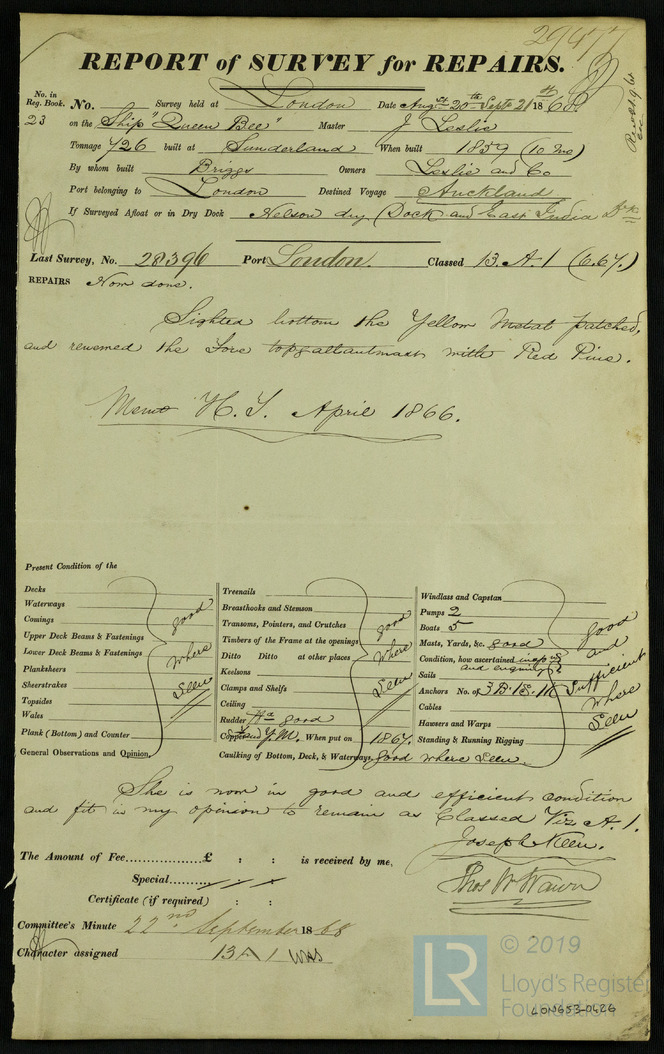 29477
REPORT of SURVEY for REPAIRS.
No. in Reg. Book. No. Survey held at London Date Augst 20th Septr 21st 1868
23 on the Ship "Queen Bee" Master J Leslie
Tonnage 726 built at Sunderland When built 1859 (10 Mo)
By whom built Briggs Owners Leslie and Co
Port belonging to London Destined Voyage Auckland
If Surveyed Afloat or in Dry Dock Nelson dry Dock and East India Dk
Last Survey, No. 28396 Port London. Classed 13. A.1 (6.67.)
REPAIRS Now done.
Sighted bottom the Yellow Metal patched,
and renewed the Fore topgallantmast with Red Pine.
Memo H. T. April 1866.
Present Condition of the
Decks
Waterways
Comings
Upper Deck Beams & Fastenings
Lower Deck Beams & Fastenings
Planksheers
Sheerstrakes
Topsides
Wales
Plank (Bottom) and Counter
General Observations and Opinion,
good
where
Seen
Treenails
Breasthooks and Stemson
Transoms, Pointers, and Crutches
Timbers of the Frame at the openings
Ditto Ditto at other places
Keelsons
Clamps and Shelfs
Ceiling
good
where
Seen
Rudder good
Copper Y.M. When put on 1867.
Caulking of Bottom, Deck, & Waterways good where Seen.
Windlass and Capstan
Pumps 2
Boats 5
Masts, Yards, &c. good
Condition, how ascertained
and enquiry
Sails
Anchors No. of 3 B. 1 S. 1 K
Cables
Hawsers and Warps
Standing & Running Rigging
good
and
Sufficient
where
Seen
She is now in good and efficient condition
and fit in my opinion to remain as Classed Viz A.1.
Joseph Keen.
The Amount of Fee £ : : is received by me,
Thos W Wawn
Special
Certificate (if required) : :
Committee's Minute 22nd September 1868
Character assigned 13 A 1
© 2019
LR
Lloyd's Register
Foundation
LON653-0426